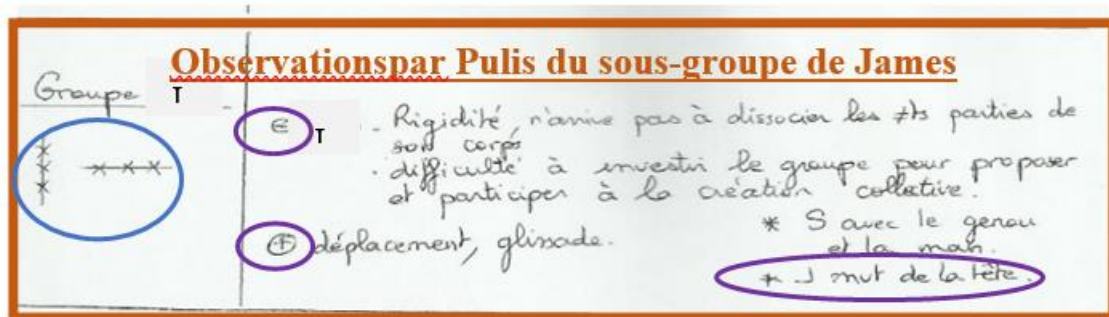 Observationspar Pulis du sous-groupe de James
Groupe T
⊖ T - Rigidité, n'arrive pas à dissocier les ≠ts parties de
son corps
. difficulté à investir le groupe pour proposer
et participer à la création collective.
⊕ déplacement, glissade.
* S avec le genou
et la main.
* mvt de la tête.